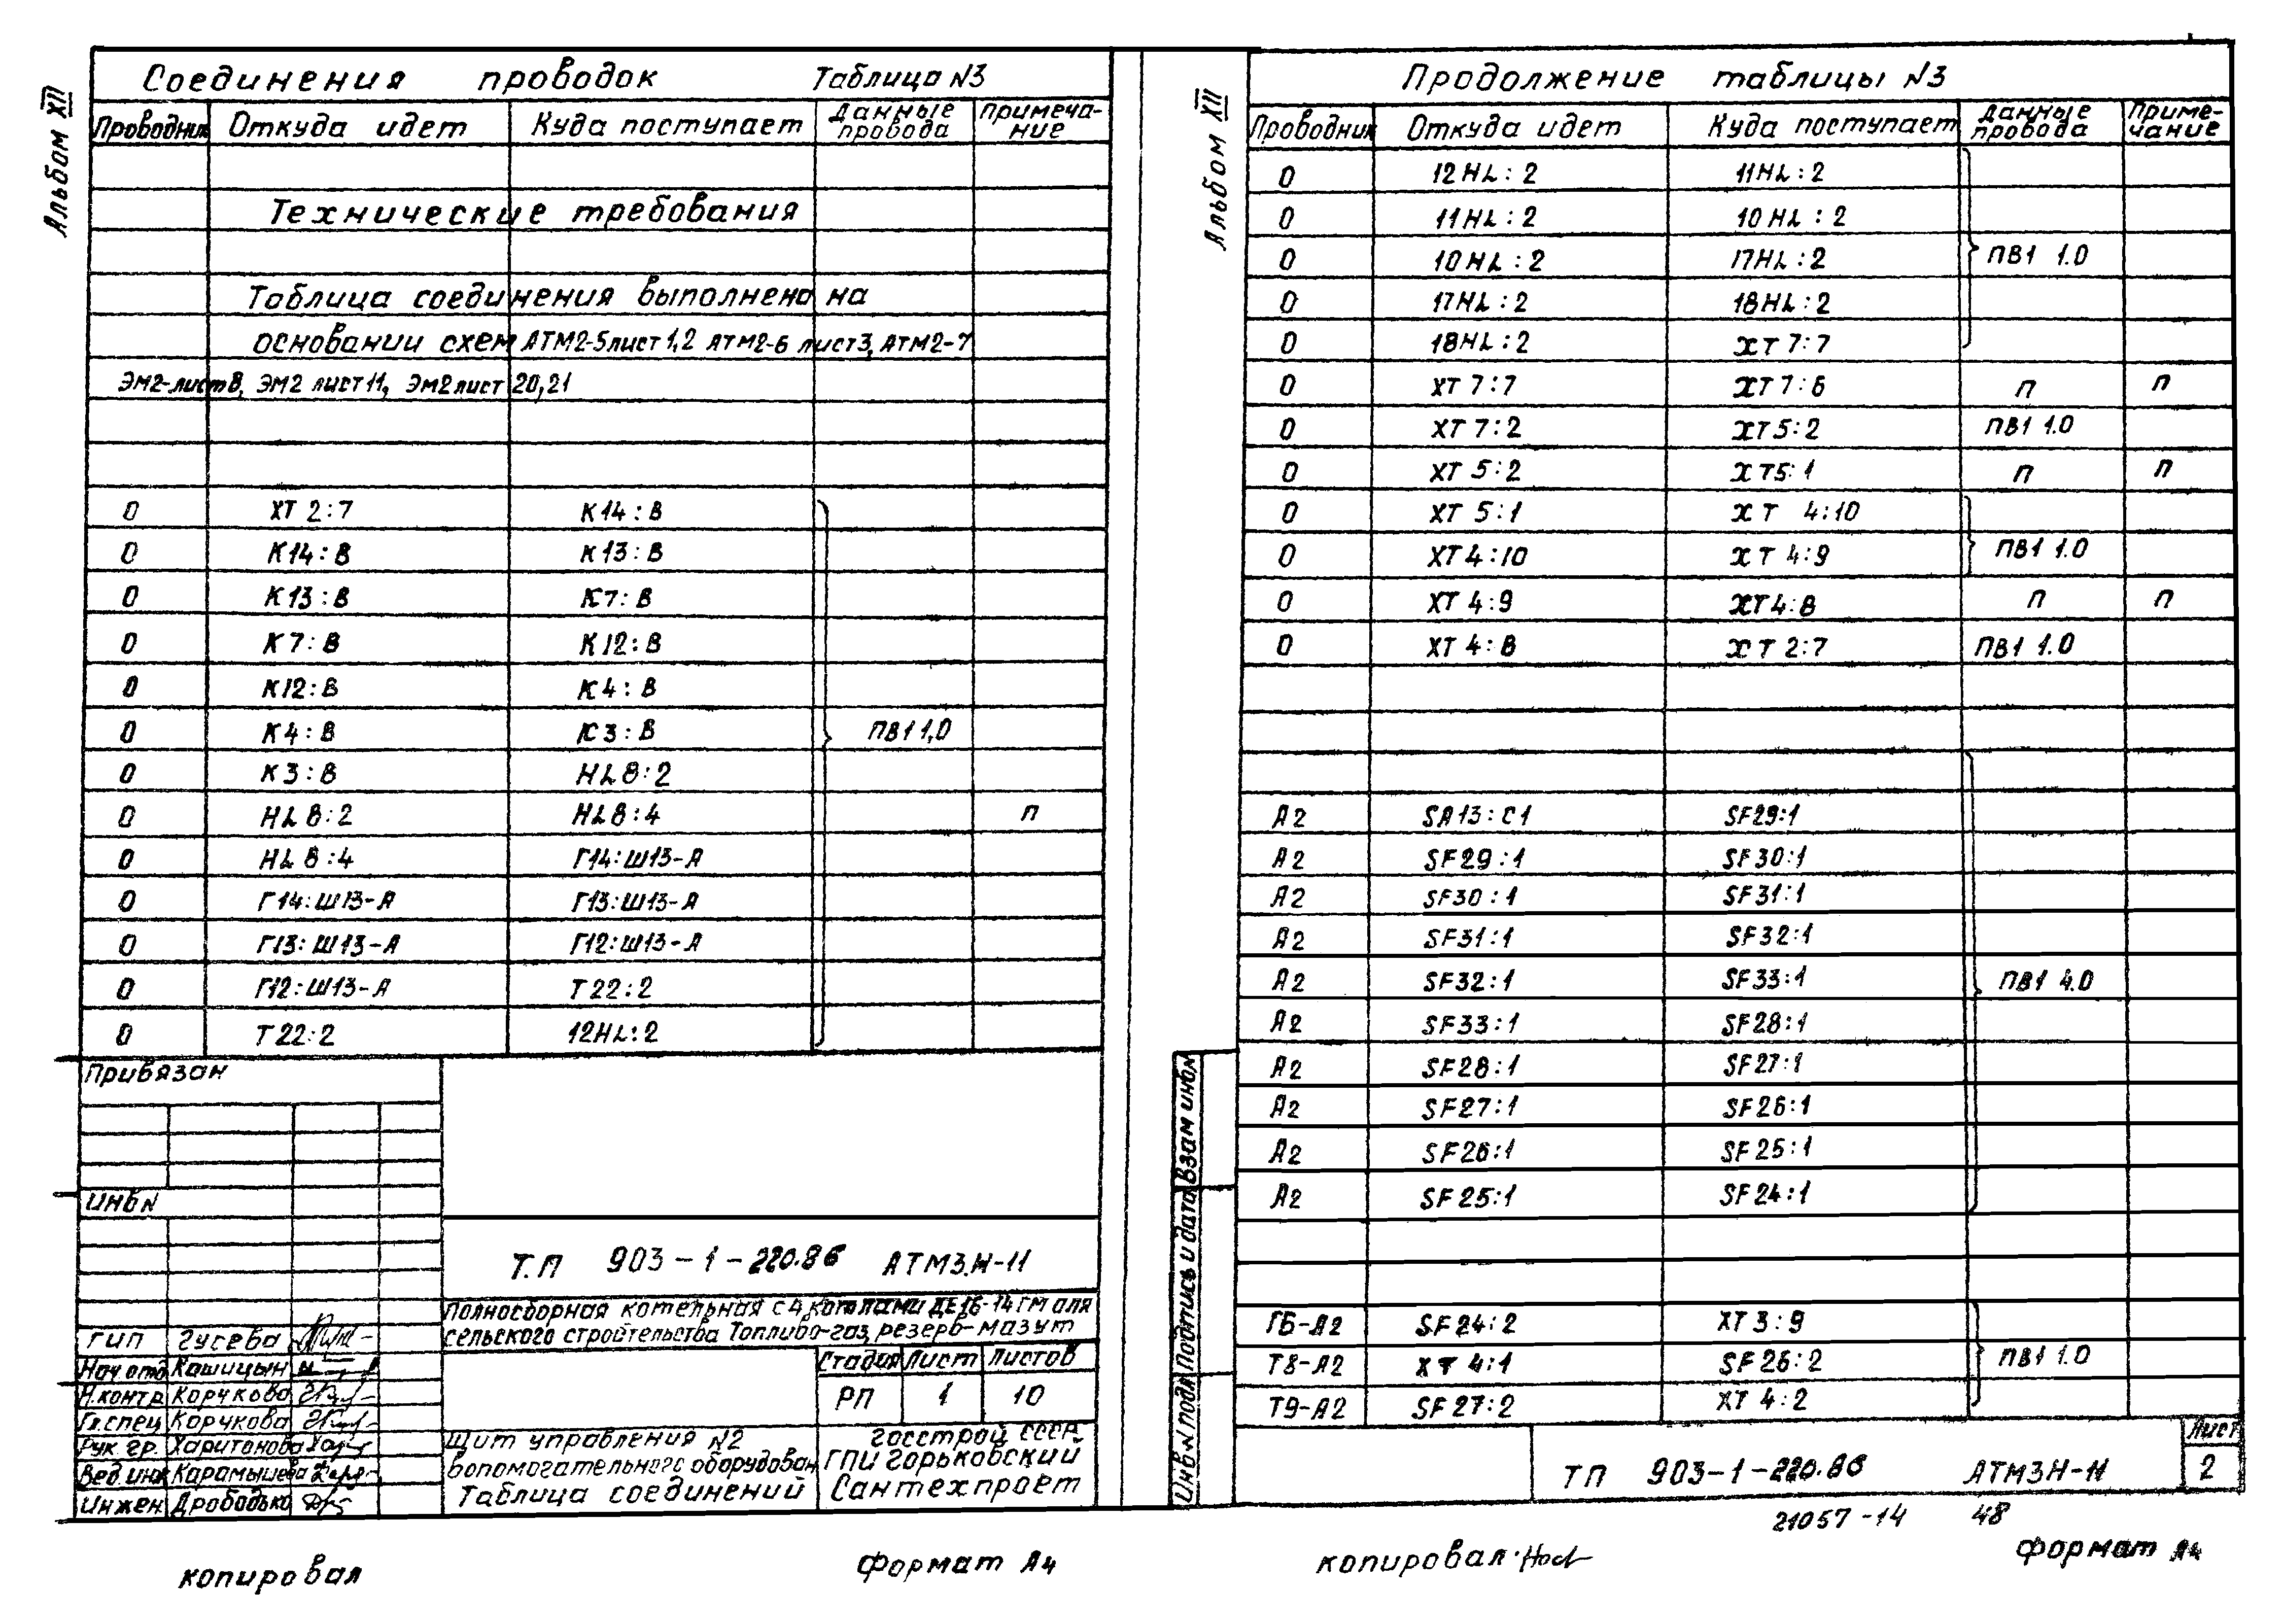 Альбом XII
Соединения проводок Таблица N3
Проводник Откуда идет Куда поступает Данные провода Примеча-ние
Технические требования
Таблица соединения выполнена на
основании схем АТМ2-5 лист 1,2 АТМ2-6 лист 3, АТМ2-7
ЭМ2-лист 8, ЭМ2 лист 11, ЭМ2 лист 20,21
0 ХТ 2:7 К14:В
0 К14:В К13:В
0 К13:В К7:В
0 К7:В К12:В
0 К12:В К4:В
0 К4:В К3:В ПВ1 1,0
0 К3:В HL8:2
0 HL8:2 HL8:4 п
0 HL8:4 Г14:Ш13-А
0 Г14:Ш13-А Г13:Ш13-А
0 Г13:Ш13-А Г12:Ш13-А
0 Г12:Ш13-А Т22:2
0 Т22:2 12HL:2
Привязан
Инв N
Т.П 903-1-220.86 АТМ3.Н-11
Полносборная котельная с 4 котлами ДЕ16-14ГМ для
сельского строительства Топливо-газ, резерв-мазут
ГИП Гусева
Нач.отд Кашицын
Н.контр Корчкова
Гл.спец Корчкова
Рук.гр. Харитонова
Вед.инж Карамышева
Инжен
Стадия Лист Листов
РП 1 10
Щит управления N2
вопомогательного оборудован
Таблица соединений
Госстрой СССР
ГПИ Горьковский
Сантехпроет
копировал
формат А4
Альбом XII
Продолжение таблицы N3
Проводник Откуда идет Куда поступает Данные провода Приме-чание
0 12HL:2 11HL:2
0 11HL:2 10HL:2
0 10HL:2 17HL:2 ПВ1 1.0
0 17HL:2 18HL:2
0 18HL:2 ХТ 7:7
0 ХТ 7:7 ХТ 7:6 п п
0 ХТ 7:2 ХТ 5:2 ПВ1 1.0
0 ХТ 5:2 ХТ5:1 п п
0 ХТ 5:1 ХТ 4:10
0 ХТ 4:10 ХТ 4:9 ПВ1 1.0
0 ХТ 4:9 ХТ 4:8 п п
0 ХТ 4:8 ХТ 2:7 ПВ1 1.0
А2 SA13:C1 SF29:1
А2 SF29:1 SF30:1
А2 SF30:1 SF31:1
А2 SF31:1 SF32:1
А2 SF32:1 SF33:1 ПВ1 4.0
А2 SF33:1 SF28:1
А2 SF28:1 SF27:1
А2 SF27:1 SF26:1
А2 SF26:1 SF25:1
А2 SF25:1 SF24:1
Г6-А2 SF24:2 ХТ 3:9
Т8-А2 ХТ 4:1 SF26:2 ПВ1 1.0
Т9-А2 SF27:2 ХТ 4:2
Инв N подл Подпись и дата Взам инв N
ТП 903-1-220.86 АТМ3Н-11
Лист
2
21057-14 48
копировал
формат А4